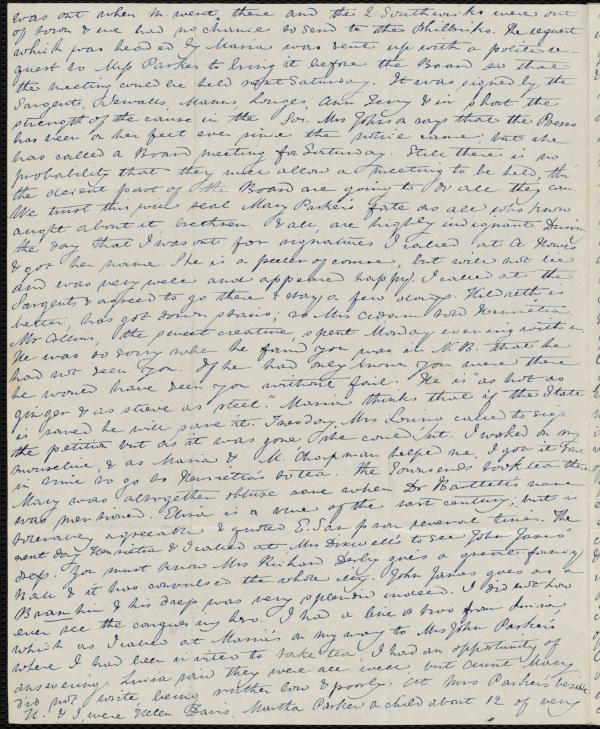 was out when M went there and the 2 Southwicks were out
of town & we had no chance to send to the Philbricks. The request
which was headed by Maria was sent up with a polite re-
quest to Miss Parker to bring it before the Board so that
the meeting could be held next Saturday. It was signed by the
Sargents, Sewalls, Manns, Longes, Ann Terry & in short the
strength of the cause in the Soc. Mrs Johnson says that the
has been on her feet ever since the notice came; but she
has called a Board meeting for Saturday. Still there is no
probability that they will allow a meeting to be held, tho'
the decent part of the Board are going to do all they can.
We trust this will seal Mary Parker's fate as all who know
aught about it, brethren & all, are highly indignant. During
the day that I was out for signatures I called at A
& got her name. She is a peeler of course; but will not lie
and was very well and appeared happy. I called at the
Sargents & agreed to go there & stay a few days. Hildreth is
better, has got down stairs; so Mrs told Henrietta.
Mr Collins, the sweet creature, spent Monday evening with us.
He was so sorry when he found you was in N.B. that he
had not seen you. If he had only known you were there
he would have seen you without fail. He is "as hot as
ginger & as stieve as steel." Maria thinks that if the State
is saved he will save it. Tuesday Mrs Loring called to sign
the petition but as it was gone she could n't. I worked on my
mouseline, & as Maria & M. Chapman helped me, I got it done
in time to go to Henrietta's to tea. The Townsends took tea there
Mary was altogether obtuse save when Dr Bartlett's name
was mentioned. Eliza is a view of the last century; but is
tolerably agreeable & quoted E. Sampson several times. The
next day Henrietta & I called at Mrs Dixwell's to see John James'
dress. You must know Mrs Richard Derby gives a great fancy
Ball & it has convulsed the whole city. John James goes as a
Bramhin & his dress was very splendid indeed. I did not how
ever see the conquering hero. I had a line or two from Luisa
which as I called at Maria's on my way to Mrs John Parker's
where I had been invited to take tea, I had an opportunity of
answering. Luisa said they were all well, but Aunt Mary
did not write being rather low & poorly. At Mrs Parker's beside
H. & I were Helen Davis, Martha Parker a child about 12 of very